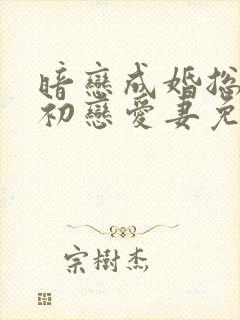 暗戀成婚
初戀愛妻
宗樹杰